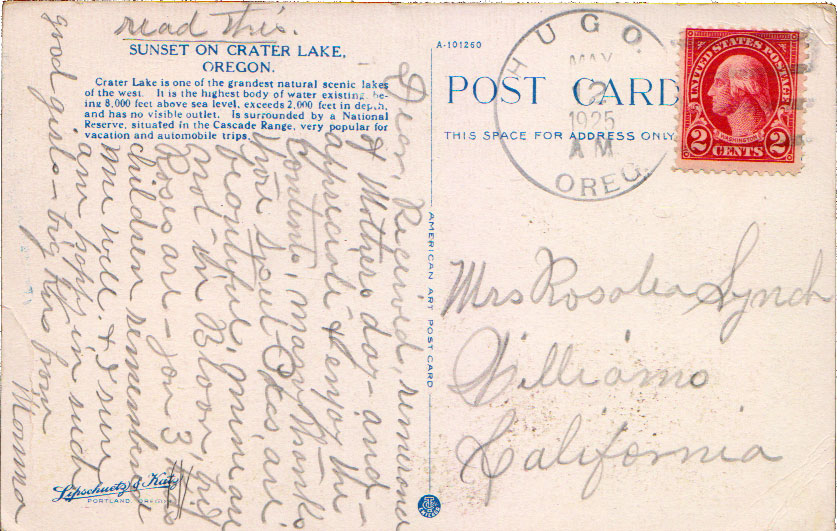 read this.
SUNSET ON CRATER LAKE,
OREGON.
Crater Lake is one of the grandest natural scenic lakes
of the west. It is the highest body of water existing, be-
ing 8,000 feet above sea level, exceeds 2,000 feet in depth,
and has no visible outlet. Is surrounded by a National
Reserve, situated in the Cascade Range, very popular for
vacation and automobile trips.
Dear, Received,
& Mothers day - and -
appreciate & enjoy the
Contents, many thanks
your Sweet Peas are
beautiful, mine are
not in Bloom, but
Roses are - you 3
children remembered
me well. & I sure
am happy in such
good girls - big kiss from
Momma
Lipschuetz & Katz
PORTLAND, OREGON
AMERICAN ART POST CARD
A-101260
POST CARD
THIS SPACE FOR ADDRESS ONLY
HUGO.
MAY
1925
A M
OREG.
UNITED STATES POSTAGE
WASHINGTON
2 CENTS 2
Mrs Rosalea Lynch
Williams
California